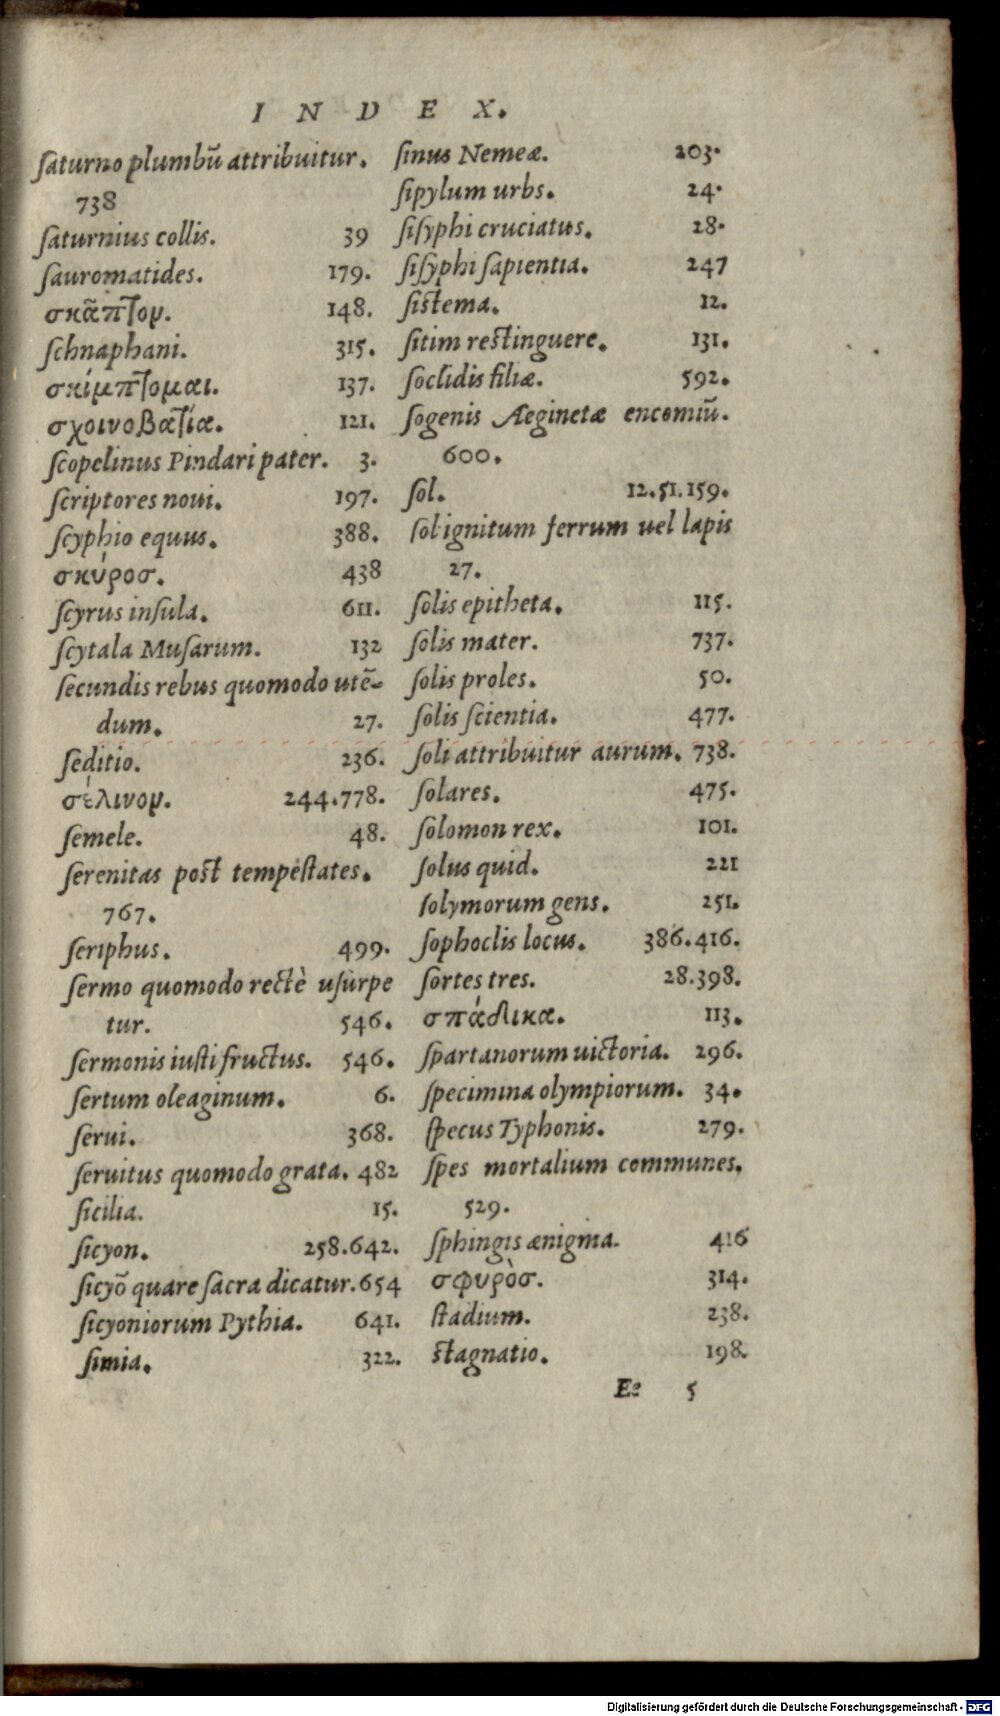 INDEX.
ſaturno plumbū attribuitur.
738
ſaturnius collis. 39
ſauromatides. 179.
σκᾶπτον. 148.
ſchnaphani. 315.
σκίμπτομαι. 137.
σχοινοβατία. 121.
ſcopelinus Pindari pater. 3.
ſcriptores noui. 197.
ſcyphio equus. 388.
σκύροσ. 438
ſcyrus inſula. 611.
ſcytala Muſarum. 132
ſecundis rebus quomodo utē-
dum. 27.
ſeditio. 236.
σέλινον. 244.778.
ſemele. 48.
ſerenitas poſt tempeſtates.
767.
ſeriphus. 499.
ſermo quomodo rectè uſurpe
tur. 546.
ſermonis iuſti fructus. 546.
ſertum oleaginum. 6.
ſerui. 368.
ſeruitus quomodo grata. 482
ſicilia. 15.
ſicyon. 258.642.
ſicyō quare ſacra dicatur. 654
ſicyoniorum Pythia. 641.
ſimia. 322.
ſinus Nemeæ. 203.
ſipylum urbs. 24.
ſiſyphi cruciatus. 28.
ſiſyphi ſapientia. 247
ſiſtema. 12.
ſitim reſtinguere. 131.
ſoclidis filiæ. 592.
ſogenis Æginetæ encomiū.
600.
ſol. 12.51.159.
ſol ignitum ferrum uel lapis
27.
ſolis epitheta. 115.
ſolis mater. 737.
ſolis proles. 50.
ſolis ſcientia. 477.
ſoli attribuitur aurum. 738.
ſolares. 475.
ſolomon rex. 101.
ſolus quid. 221
ſolymorum gens. 251.
ſophoclis locus. 386.416.
ſortes tres. 28.398.
σπάδικα. 113.
ſpartanorum uictoria. 296.
ſpecimina olympiorum. 34.
ſpecus Typhonis. 279.
ſpes mortalium communes.
529.
ſphingis ænigma. 416
σφυρὸσ. 314.
ſtadium. 238.
ſtagnatio. 198.
Ee 5
Digitalisierung gefördert durch die Deutsche Forschungsgemeinschaft - DFG